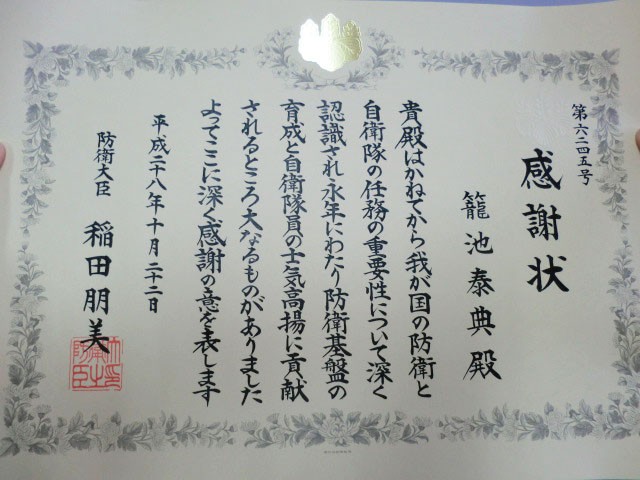 第六二四五号
感謝状
籠池泰典殿
貴殿はかねてから我が国の防衛と
自衛隊の任務の重要性について深く
認識され永年にわたり防衛基盤の
育成と自衛隊員の士気高揚に貢献
されるところ大なるものがありました
よってここに深く感謝の意を表します
平成二十八年十月二十二日
防衛大臣 稲田朋美
防衛大臣之印